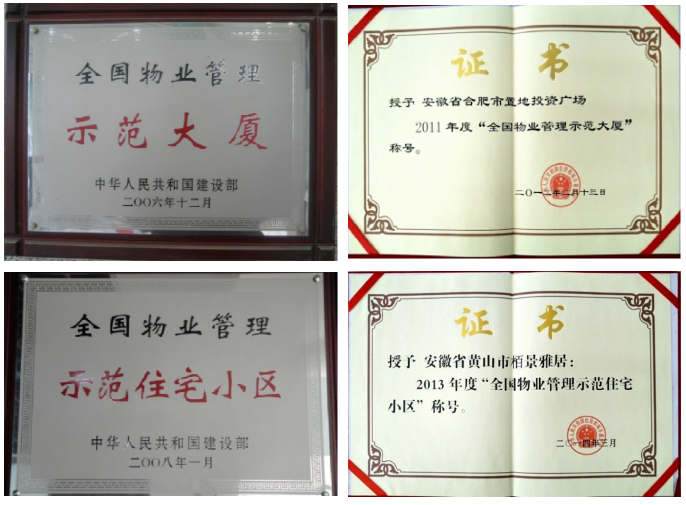 全国物业管理
示范大厦
中华人民共和国建设部
二〇〇六年十二月
证书
授予 安徽省合肥市置地投资广场
2011年度“全国物业管理示范大厦”
称号。
二〇一二年二月十三日
全国物业管理
示范住宅小区
中华人民共和国建设部
二〇〇八年一月
证书
授予 安徽省黄山市栢景雅居：
2013年度“全国物业管理示范住宅
小区”称号。
二〇一四年三月